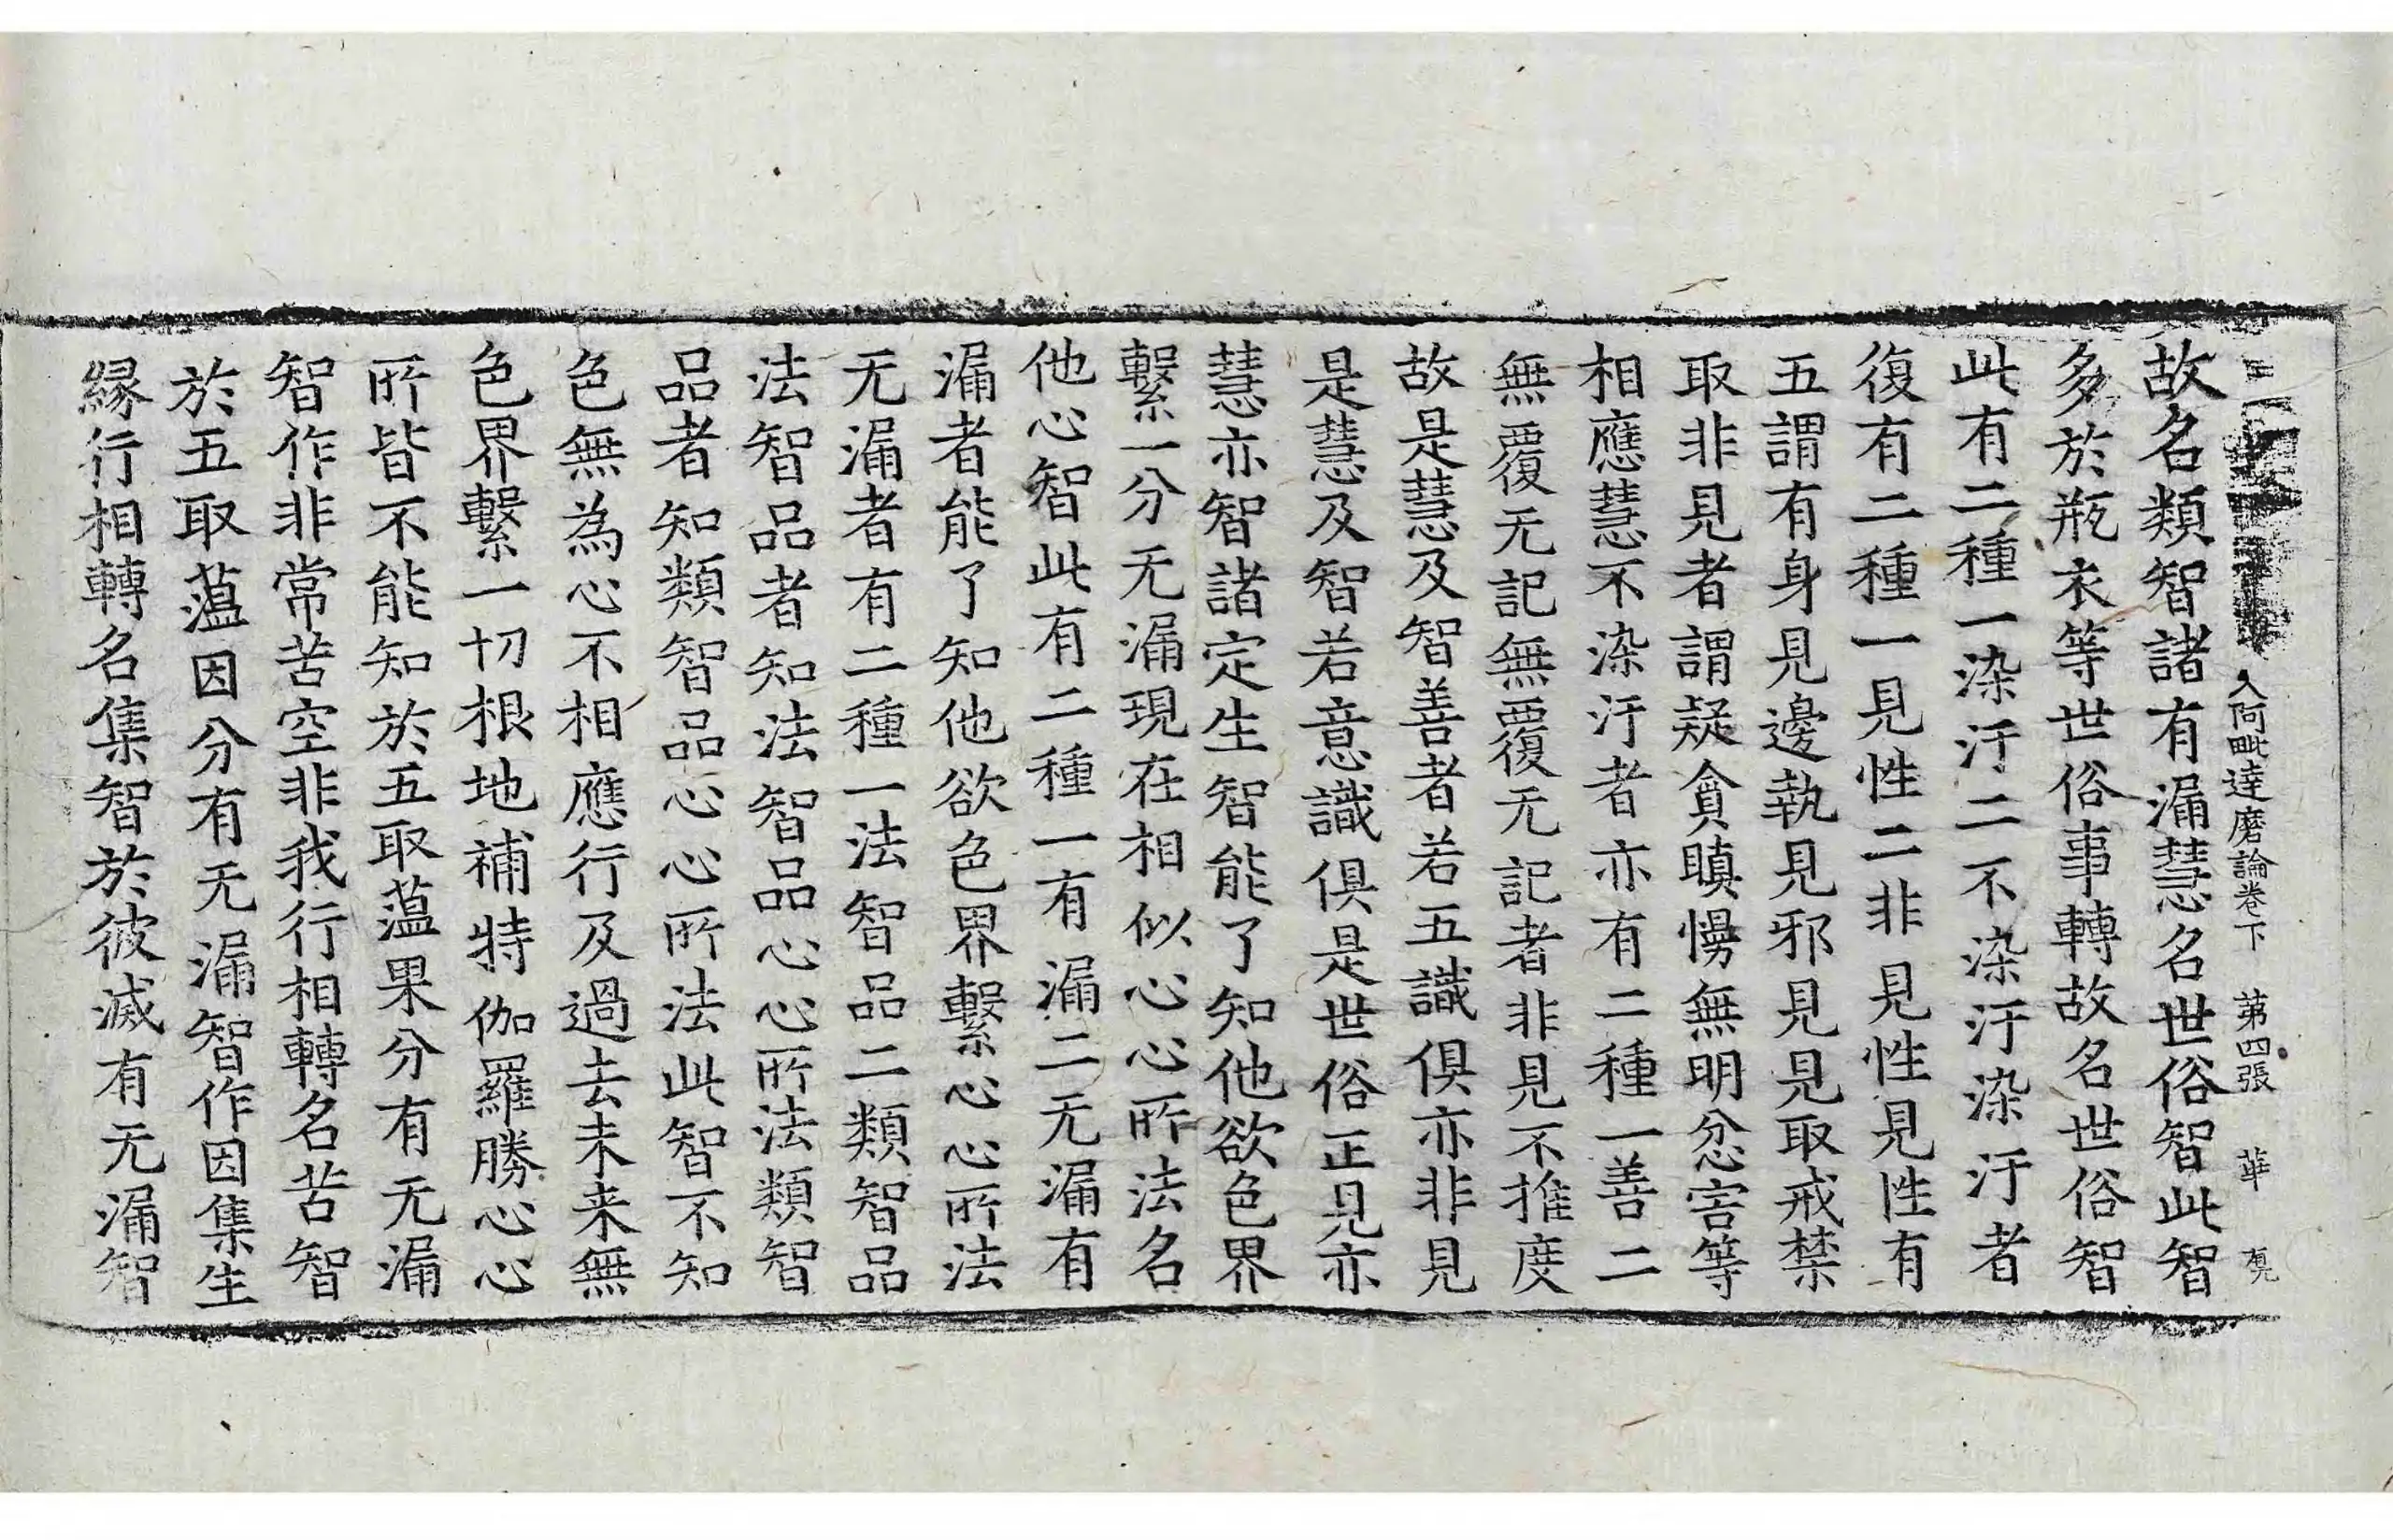 入阿毗達磨論卷下 第四張 華
故名類智諸有漏慧名世俗智此智
多於瓶衣等世俗事轉故名世俗智
此有二種一染汙二不染汙染汙者
復有二種一見性二非見性見性有
五謂有身見邊執見邪見見取戒禁
取非見者謂疑貪瞋慢無明忿害等
相應慧不染汙者亦有二種一善二
無覆无記無覆无記者非見不推度
故是慧及智善者若五識俱亦非見
是慧及智若意識俱是世俗正見亦
慧亦智諸定生智能了知他欲色界
繫一分无漏現在相似心心所法名
他心智此有二種一有漏二无漏有
漏者能了知他欲色界繫心心所法
无漏者有二種一法智品二類智品
法智品者知法智品心心所法類智
品者知類智品心心所法此智不知
色無為心不相應行及過去未来無
色界繫一切根地補特伽羅勝心心
所皆不能知於五取蕰果分有无漏
智作非常苦空非我行相轉名苦智
於五取蕰因分有无漏智作因集生
緣行相轉名集智於彼滅有无漏智